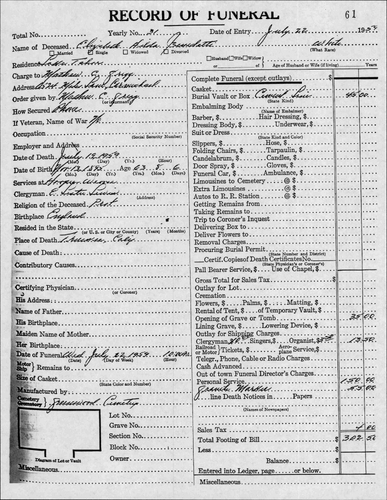 RECORD OF FUNERAL
61
Total No. Yearly No. 31 Date of Entry July 22 195
Name of Deceased Elizabeth Benedetti White
Married Single Widowed Divorced (What Race)
Residence Husband Wife Widow of Age of Husband or Wife (if living)
Charge to Complete Funeral (except outlays) $
Address Casket
Order given by Burial Vault or Box Cement Liner 45.00
(State Kind)
How Secured Embalming Body
(Name of Embalmer)
If Veteran, Name of War Barber, $ Hair Dressing, $
Occupation Dressing Body, $ Underwear, $
(Social Security Number) Suit or Dress
(State Kind and Color)
Employer and Address Slippers, $ Hose, $
Date of Death July 19 1959 Folding Chairs, $ Tarpaulin, $
Candelabrum, $ Candles, $
Date of Birth 1895 Age 63 8 6 Door Spray, $ Gloves, $
Services at Funeral Car, $ Ambulance, $
Clergyman Limousines to Cemetery @ $
(Address) Extra Limousines @ $
Religion of the Deceased Prot Autos to R. R. Station @ $
Birthplace England Getting Remains from
Resided in the State Taking Remains to
(or U. S. or City or County) (Years) (Months) Trip to Coroner's Inquest
Place of Death Truckee, Calif Delivering Box to
Cause of Death: Deliver Flowers to
Removal Charges
Contributory Causes Procuring Burial Permit
(State Number and District)
Certif. Copies of Death Certificates No.
(State Physician's or Coroner's)
Pall Bearer Service, $ Use of Chapel, $
Certifying Physician Gross Total for Sales Tax $
(or Coroner) Outlay for Lot
His Address Cremation
Name of Father Flowers, $ Palms, $ Matting, $
His Birthplace Rental of Tent, $ of Temporary Vault, $
Opening of Grave or Tomb 35.00
Maiden Name of Mother Lining Grave, $ Lowering Device, $
Her Birthplace Outlay for Shipping Charges
Date of Funeral Wed July 22, 1959 10:00 A.M. Clergyman, $ Singers, $ Organist, $
(Date) (Day of Week) (Hour) Railroad or Motor Tickets, $ Aeroplane Service, $
Motor Shipping Remains to Telegr., Phone, Cable or Radio Charges
Cash Advanced
Size of Casket Out of town Funeral Director's Charges
(State Color and Number) Personal Service 150 00
Manufactured by Granite Marker 55 00
Cemetery Crematory Greenwood Cemetery line Death Notices in Papers
(Names of Newspapers)
Lot No.
Grave No.
Section No. Sales Tax 4 00
Block No. Total Footing of Bill $ 302 50
Owner Less
Diagram of Lot or Vault Balance $
Miscellaneous Entered into Ledger, page or below.
Miscellaneous: